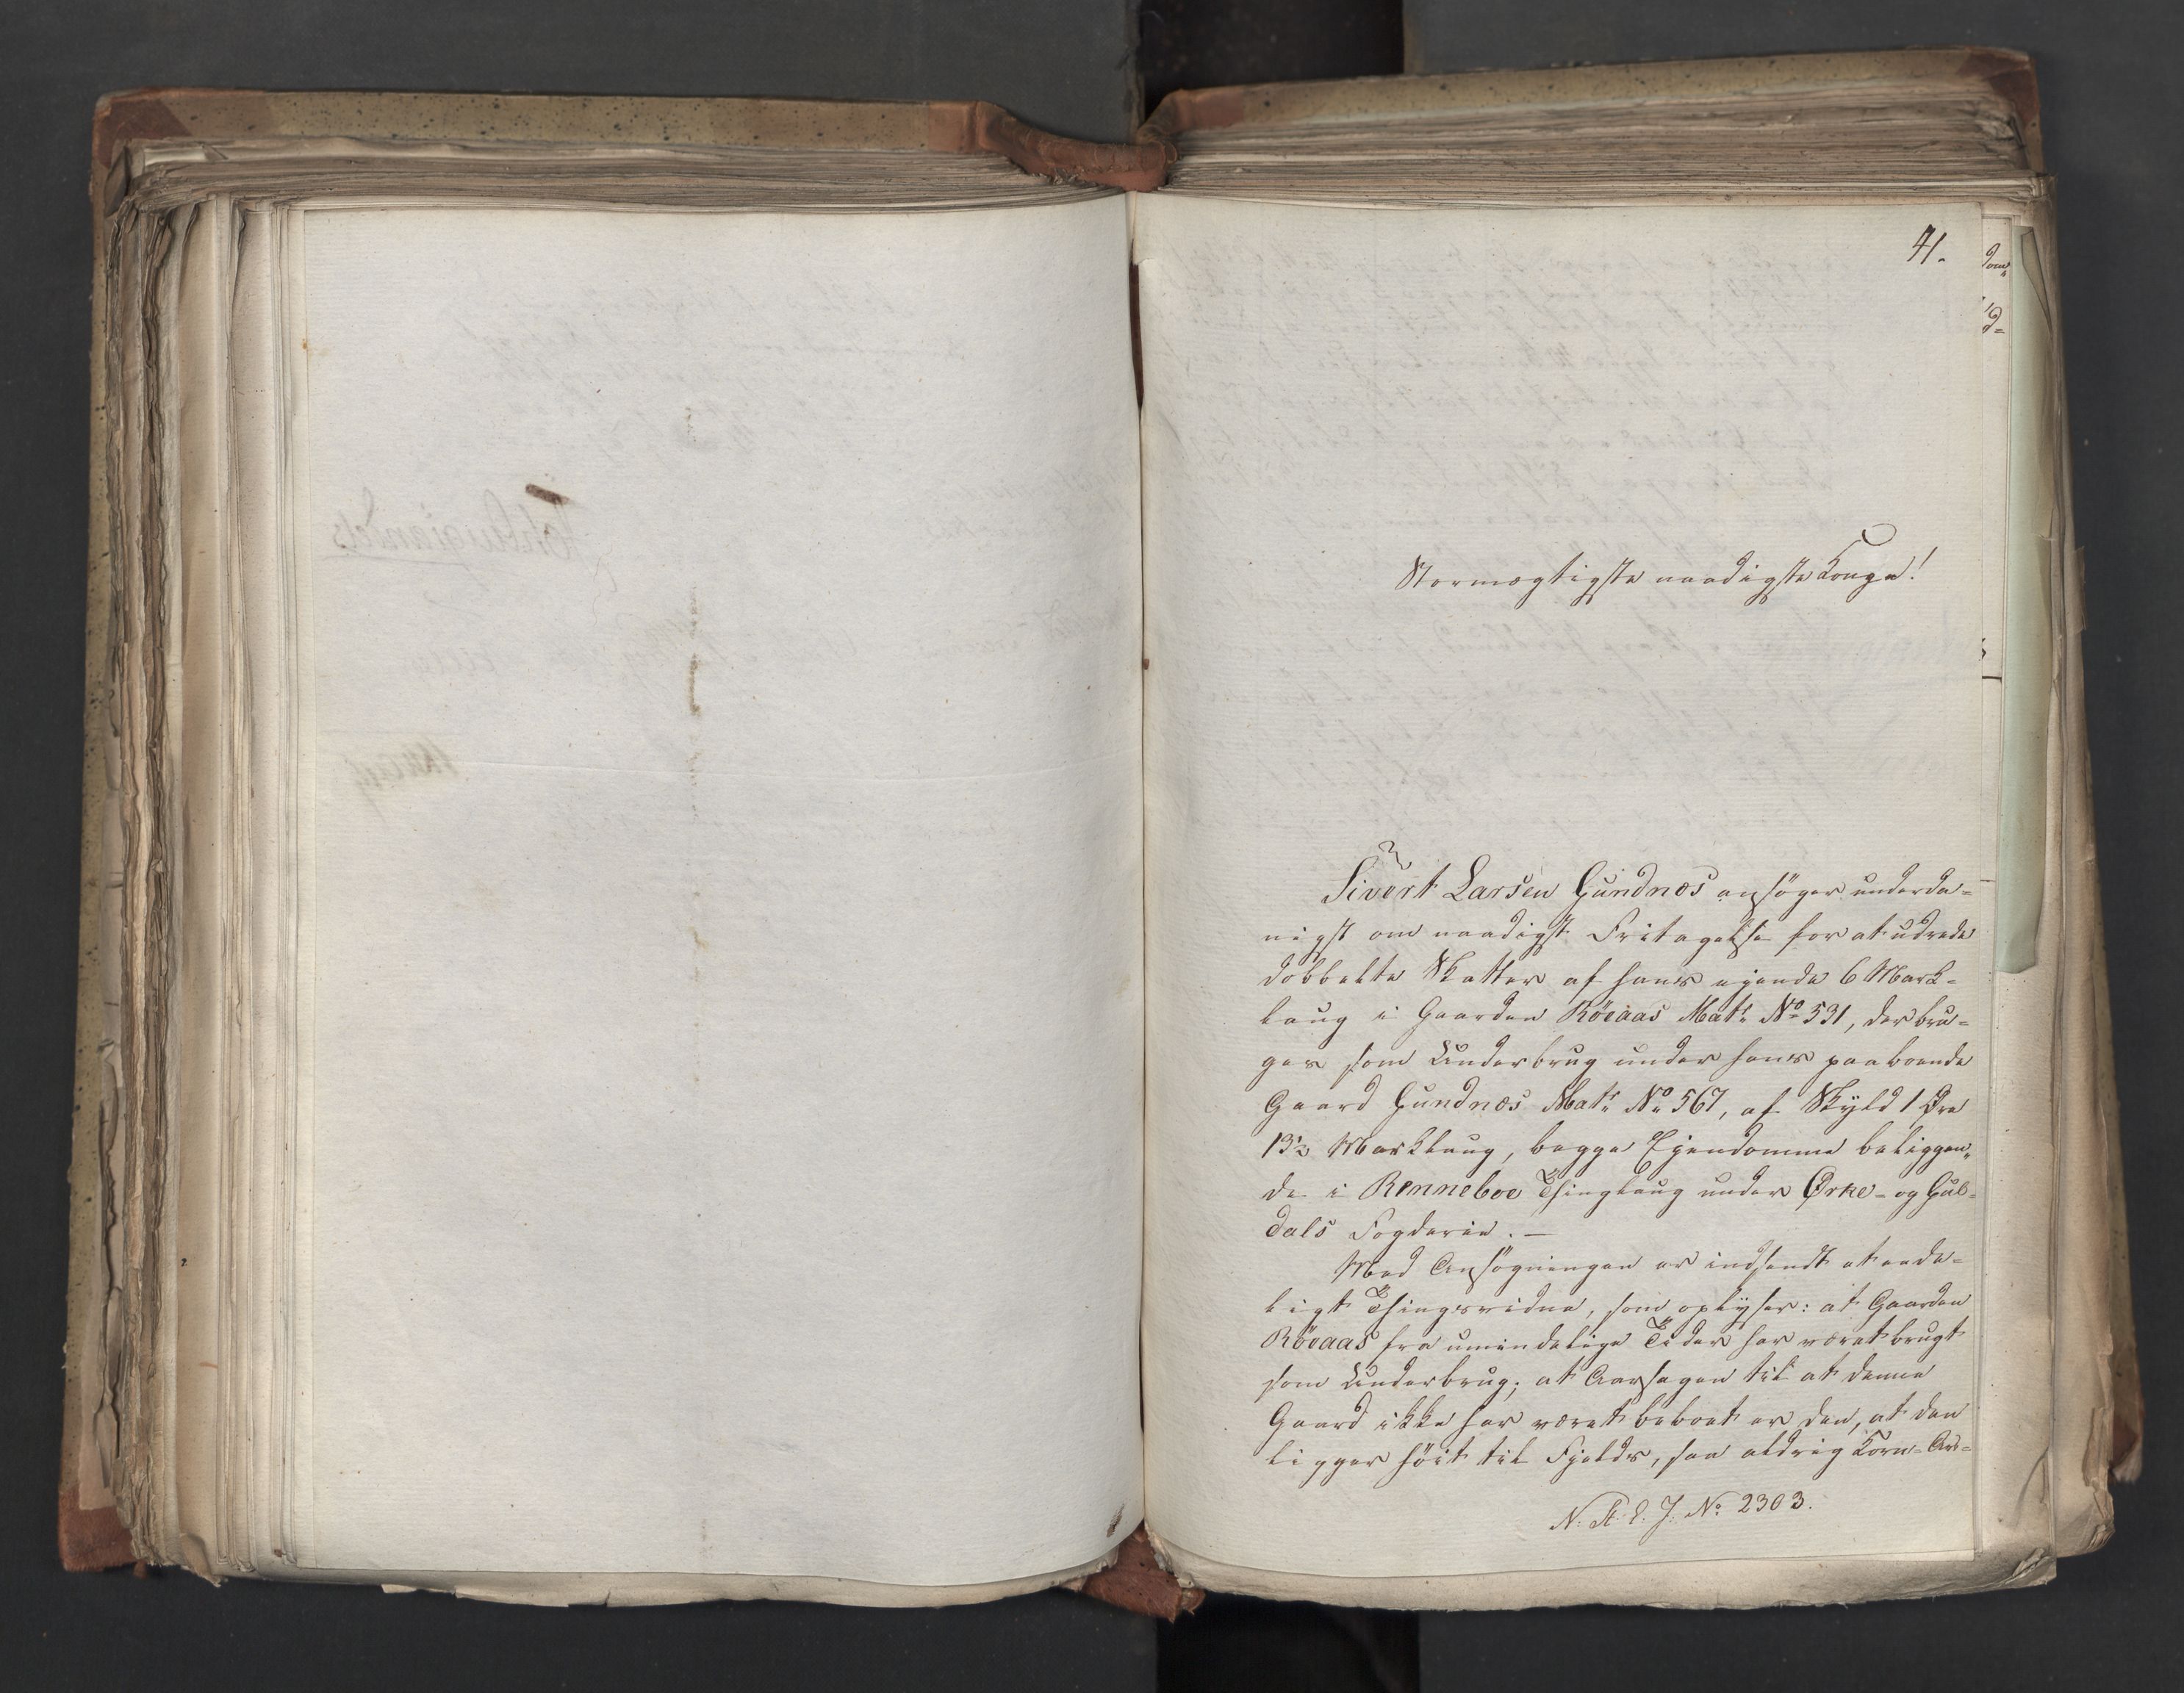 41.
Stormægtigste naadigste Konge!
Sivert Larsen Gundnæs ansöger underda=
nigst om naadigst Fritagelse for at udrede
dobbelte Skatter af hans ejende 6 Mark=
laug i Gaarden Röeaas Mat: No 531, der bru=
ges som Underbrug under hans paaboende
Gaard Gundnæs Mat: No 567, af Skyld 1 Øre
13½ Marklaug, begge Ejendomme beliggen„
de i Renneboe Thinglaug under Ørke- og Gul=
dals Fogderie. —
Med Ansögningen er indsendt et ende=
ligt Thingsvidne, som oplyser: at Gaarden
Röeaas fra umindelige Tider har været brugt
som Underbrug; at Aarsagen til at denne
Gaard ikke har været beboet er den, at den
ligger höit til Fjelds, saa aldrig Korn-Av=
N. A. E. J. No 2303.